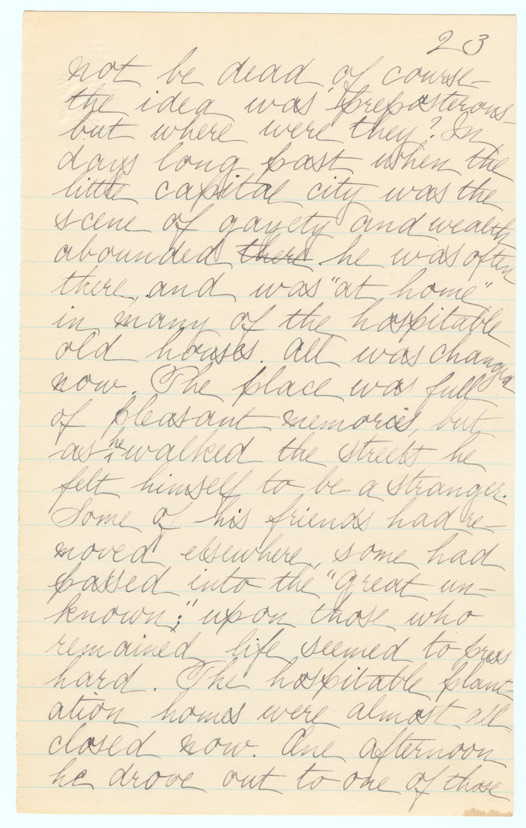 23
not be dead of course—
the idea was preposterous—
but where were they? In
days long past when the
little capital city was the
scene of gayety and wealth
abounded there he was often
there, and was "at home"
in many of the hospitable
old houses. All was changed
now. The place was full
of pleasant memories, but
as he walked the streets he
felt himself to be a stranger.
Some of his friends had re-
moved elsewhere, some had
passed into the "great un-
known;" upon those who
remained life seemed to press
hard. The hospitable plant-
ation homes were almost all
closed now. One afternoon
he drove out to one of those